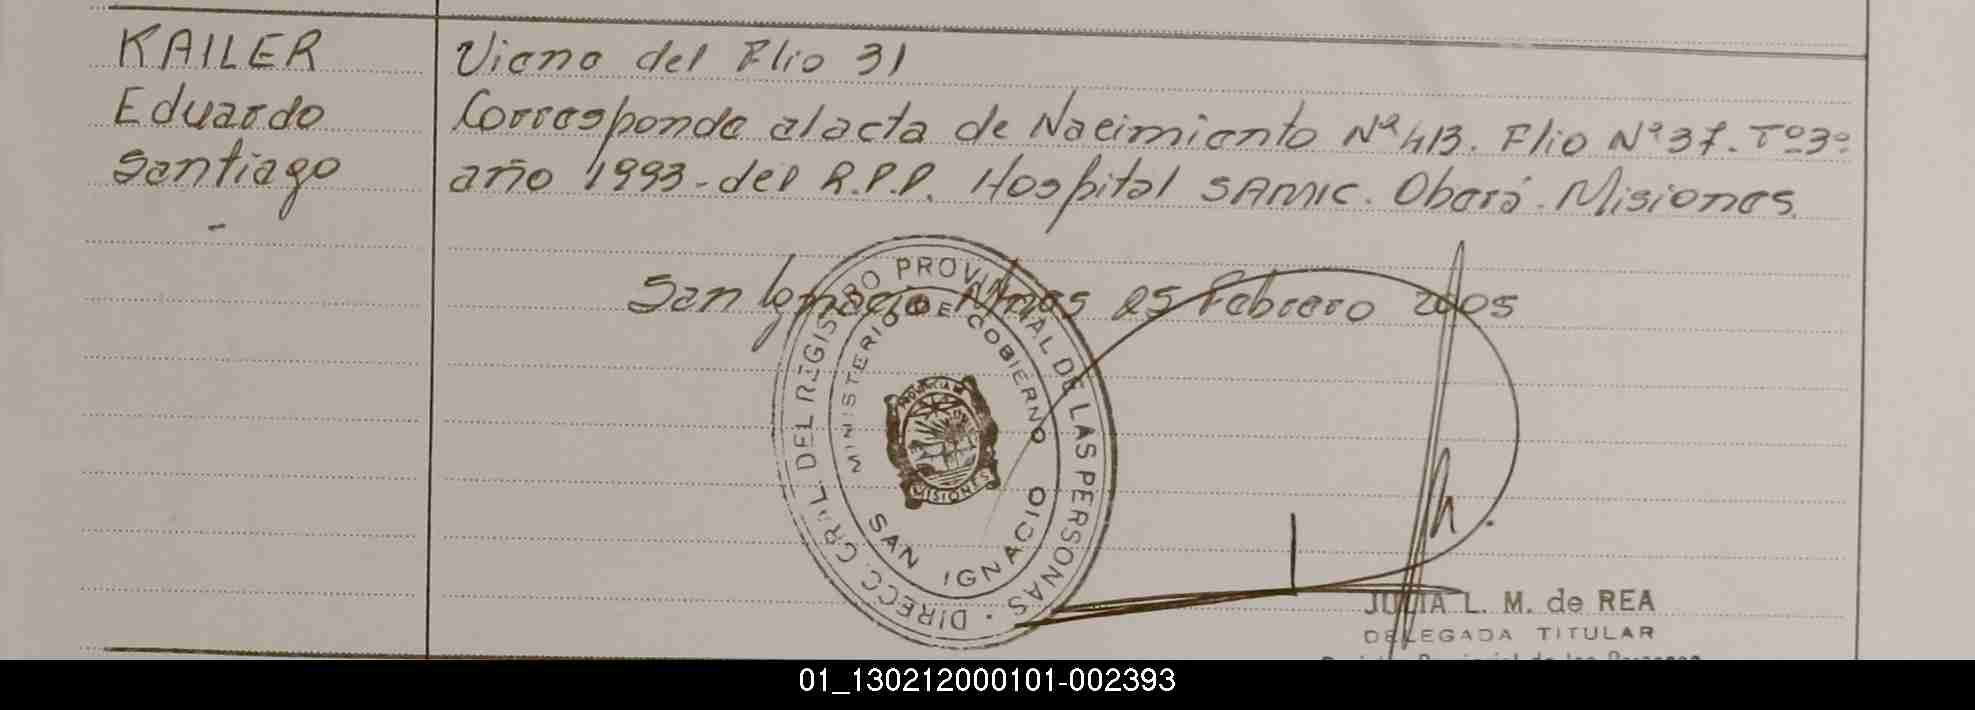 KAILER
Eduardo
Santiago
-
Viene del Flio 31
Corresponde al acta de Nacimiento Nº 413. Flio Nº 37. Tº 3º
año 1993 - del R.P.P. Hospital SAMIC. Oberá. Misiones.
San Ignacio Mnes 25 Febrero 2005
DIRECC. GRAL DEL REGISTRO PROVINCIAL DE LAS PERSONAS
MINISTERIO DE GOBIERNO
PROVINCIA DE
MISIONES
SAN IGNACIO
JULIA L. M. de REA
DELEGADA TITULAR
01_130212000101-002393